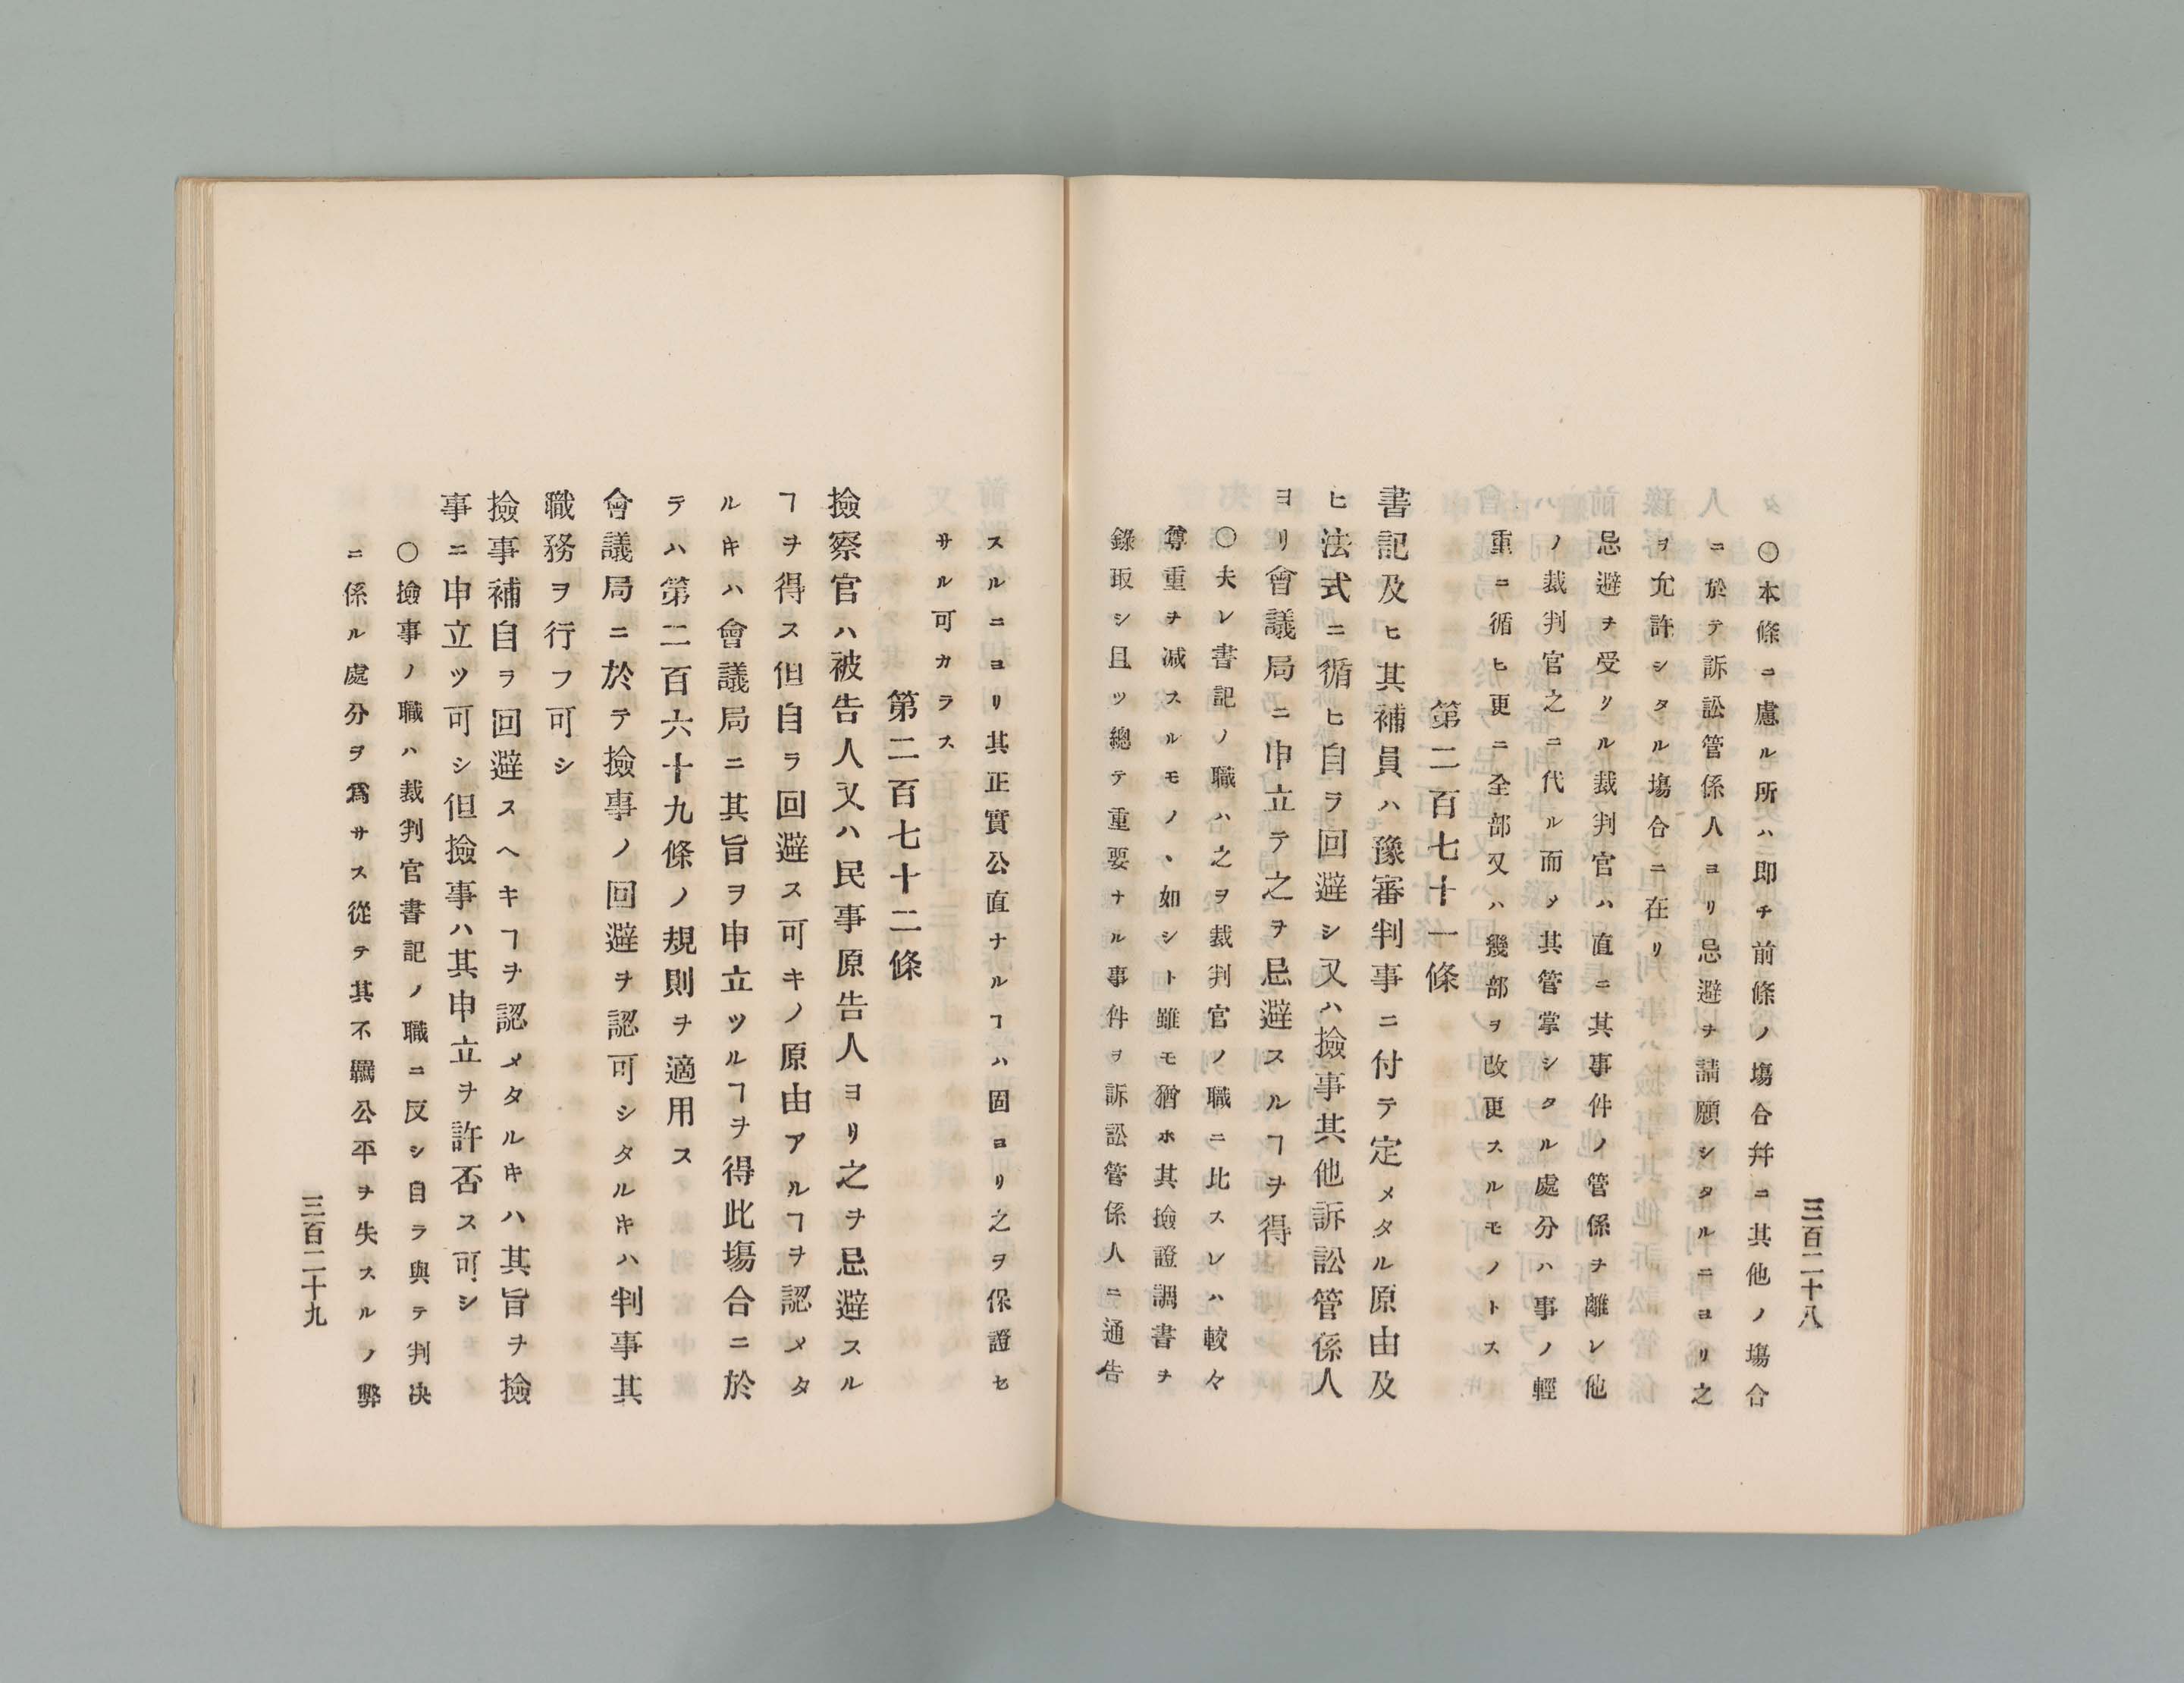 三百二十八
〇本條ニ慮ル所ハ即チ前條ノ塲合幷ニ其他ノ塲合
ニ於テ訴訟管係人ヨリ忌避ヲ請願シタルニヨリ之
ヲ允許シタル塲合ニ在リ
忌避ヲ受リル裁判官ハ直ニ其事件ノ管係ヲ離レ他
ノ裁判官之ニ代ル而メ其管掌シタル處分ハ事ノ輕
重ニ循ヒ更ニ全部又ハ幾部ヲ改更スルモノトス
第二百七十一條
書記及ヒ其補員ハ豫審判事ニ付テ定メタル原由及
ヒ法式ニ循ヒ自ラ回避シ又ハ撿事其他訴訟管係人
ヨリ會議局ニ申立テ之ヲ忌避スルヿヲ得
〇夫レ書記ノ職ハ之ヲ裁判官ノ職ニ比スレハ較々
尊重ヲ减スルモノヽ如シト雖モ猶ホ其撿證調書ヲ
錄取シ且ツ總テ重要ナル事件ヲ訴訟管係人ニ通告
スルニヨリ其正實公直ナルヿハ固ヨリ之ヲ保證セ
サル可カラス
第二百七十二條
撿察官ハ被告人又ハ民事原告人ヨリ之ヲ忌避スル
ヿヲ得ス但自ラ回避ス可キノ原由アルヿヲ認メタ
ルキハ會議局ニ其旨ヲ申立ツルヿヲ得此塲合ニ於
テハ第二百六十九條ノ規則ヲ適用ス
會議局ニ於テ撿事ノ回避ヲ認可シタルキハ判事其
職務ヲ行フ可シ
撿事補自ヲ回避スヘキヿヲ認メタルキハ其旨ヲ撿
事ニ申立ツ可シ但撿事ハ其申立ヲ許否ス可シ
〇撿事ノ職ハ裁判官書記ノ職ニ反シ自ラ與テ判决
ニ係ル處分ヲ爲サス從テ其不羈公平ヲ失スルノ弊
三百二十九